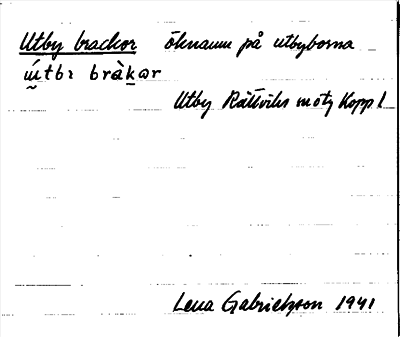 Utby brackor öknamn på utbyborna
ṵ́tbɪ bràk̠ar
Utby Rättviks
Lena Gabrielsson 1941